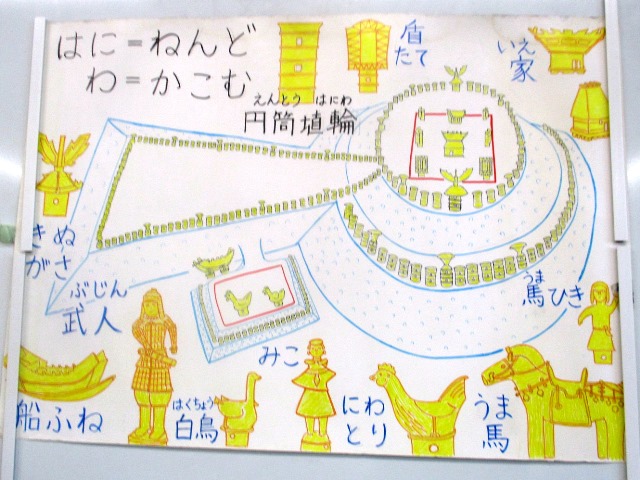 はに＝ねんど
わ＝かこむ
えんとう はにわ
円筒埴輪
盾
たて
いえ
家
きぬ
がさ
ぶじん
武人
うま
馬ひき
みこ
船ふね
はくちょう
白鳥
にわ
とり
うま
馬